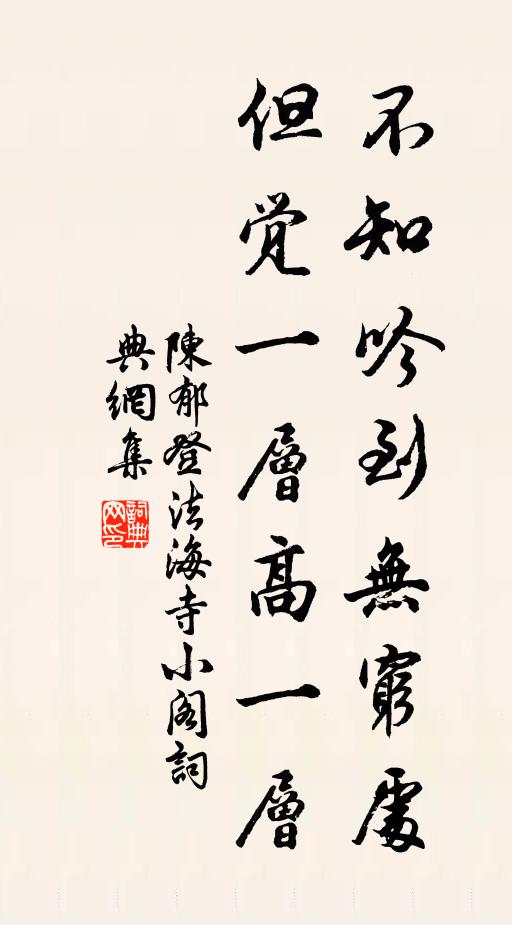 不知吟到無窮處
但覚一層高一層
陳郁登法海寺小閣詞
典網集
詞典
网印